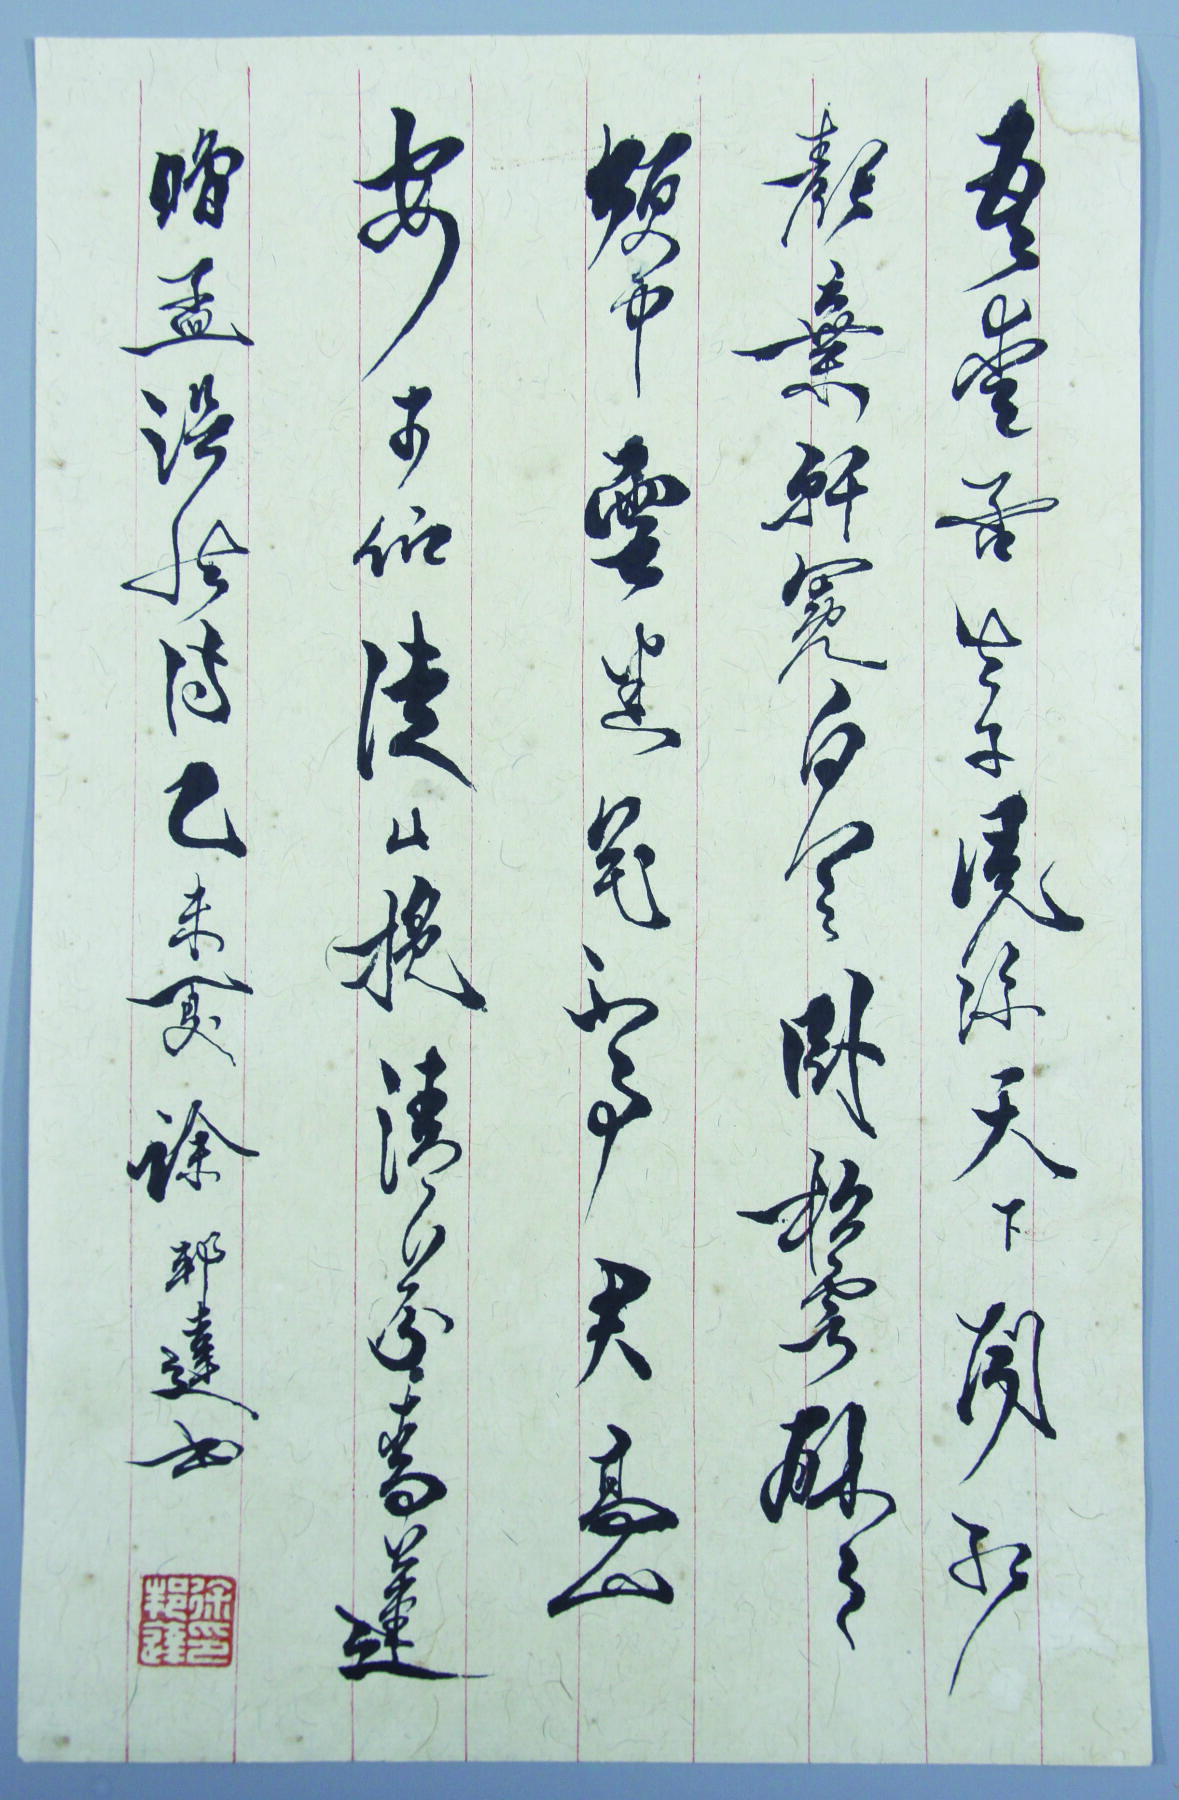 吾愛孟夫子風流天下聞紅
顏棄軒冕白首卧松雲醉月
頻中聖迷花不事君高山
安可仰徒此挹清芬青蓮
贈孟浩然詩乙未夏徐邦達書
徐邦達印